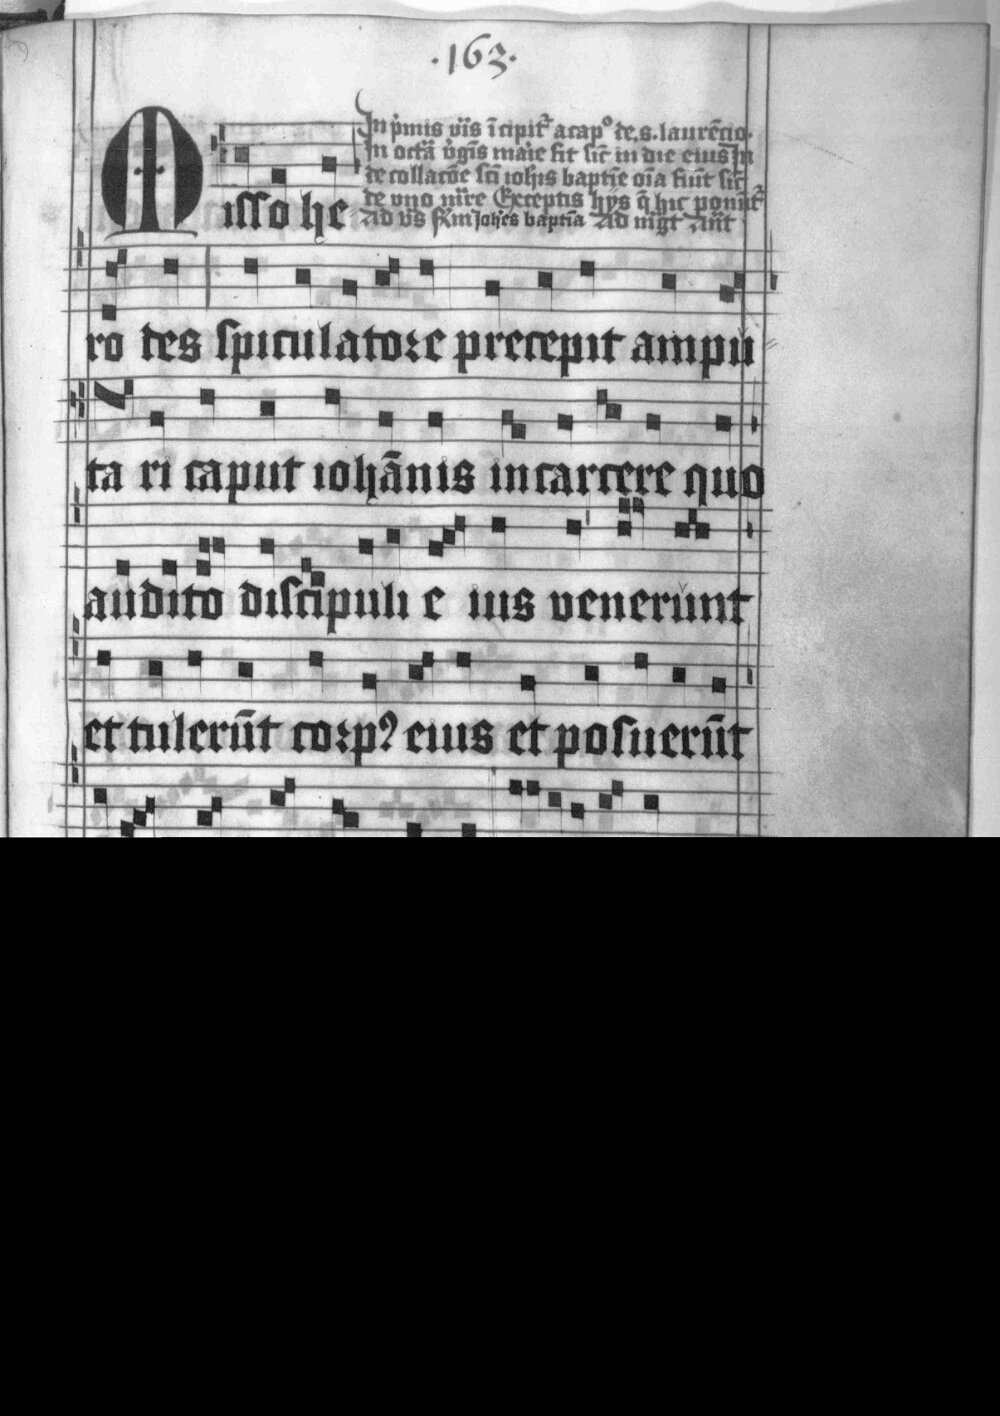 ·163·
In p̄mis v̄is īcipit᷑ a cap° de .s. laurēcio.
In octā v̄gīs marie fit sic̄ in die eius In
de collacōe sc̄i ioh̄is baptīe oīa fiūt sic̄
de vno m̄re Exceptis hys q̄ hic ponūt᷑
Ad v̄s Joh̄es baptīa Ad m̄gt Añt
Misso he
ro des spiculatore precepit ampu
ta ri caput iohānis in carcere quo
audito discipuli e ius venerunt
et tulerūt corpꝰ eius et posuerūt